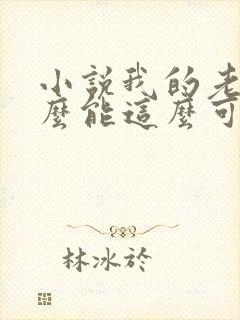 小說我的老
麼能這麼可
林冰於